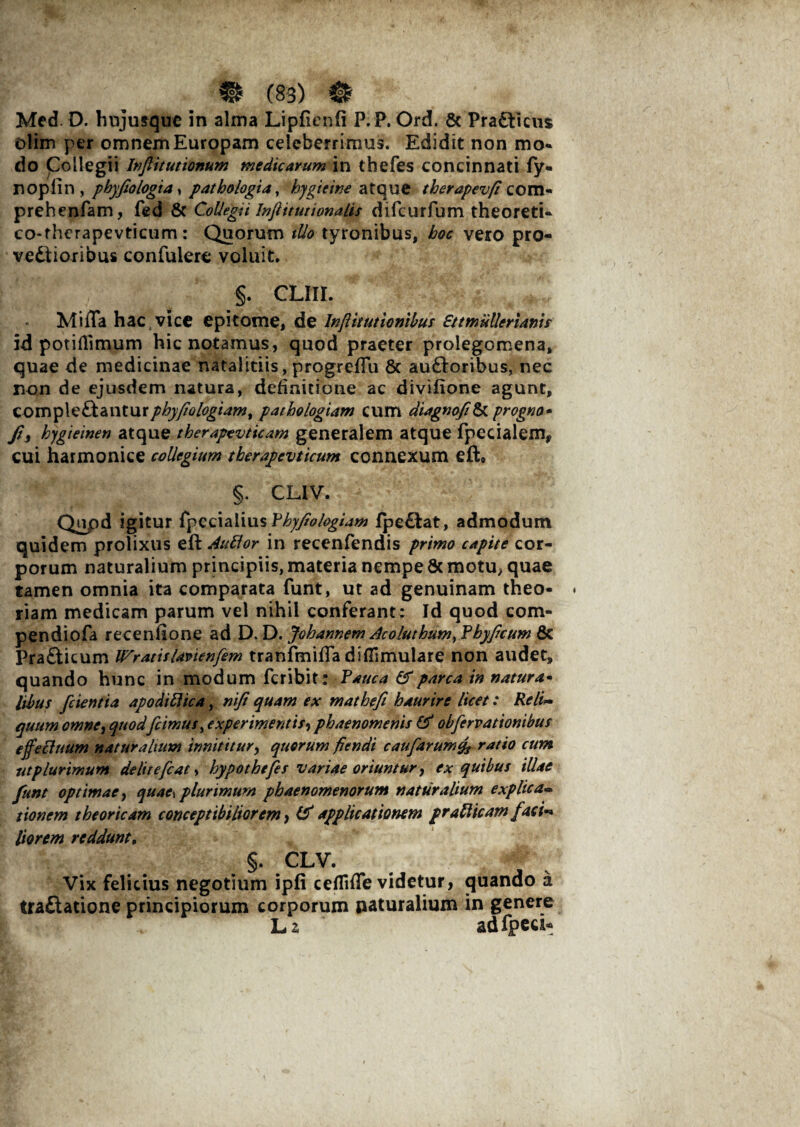 (83)
Med. D. hujusque in alma Lipſienſi P. P. Ord. & Practicus
olim per omnem Europam celeberrimus. Edidit non mo-
do Collegii Inſtitutionum medicarum in theſes concinnati ſy-
nopſin, phyſiologia, pathologia, hygieine atque therapevſi com-
prehenſam, ſed & Collegii Inſtitutionalis diſcurſum theoreti-
co-therapevticum: Quorum illo tyronibus, hoc vero pro-
vectioribus conſulere voluit.
§. CLIII.
Miſſa hac vice epitome, de Inſtitutionibus Ettmüllerianis
id potiſſimum hic notamus, quod praeter prolegomena,
quae de medicinae natalitiis, progreſſu & auctoribus, nec
non de ejusdem natura, definitione ac diviſione agunt,
complectantur phyſiologiam, pathologiam cum diagnoſi & progno-
ſi, hygieinen atque therapevticam generalem atque ſpecialem,
cui harmonice collegium therapevticum connexum eſt.
§. CLIV.
Quod igitur ſpecialius Phyſiologiam ſpectat, admodum
quidem prolixus eſt Auctor in recenſendis primo capite cor-
porum naturalium principiis, materia nempe & motu, quae
tamen omnia ita comparata ſunt, ut ad genuinam theo-
riam medicam parum vel nihil conferant: Id quod com-
pendioſa recenſione ad D. D. Johannem Acoluthum, Phyſicum &
Practicum Wratislavienſem tranſmiſſa diſſimulare non audet,
quando hunc in modum ſcribit: Pauca & parca in natura-
libus ſcientia apodictica, niſi quam ex matheſi haurire licet: Reli-
quum omne, quod ſcimus, experimentis, phaenomenis & obſervationibus
effectuum naturalium innititur, quorum fiendi cauſarumq; ratio cum
utplurimum deliteſcat, hypotheſes variae oriuntur, ex quibus illae
ſunt optimae, quae plurimum phaenomenorum naturalium explica-
tionem theoricam conceptibiliorem, & applicationem practicam faci-
liorem reddunt.
§. CLV.
Vix felicius negotium ipſi ceſſiſſe videtur, quando a
tractatione principiorum corporum naturalium in genere
L 2 ad ſpeci-